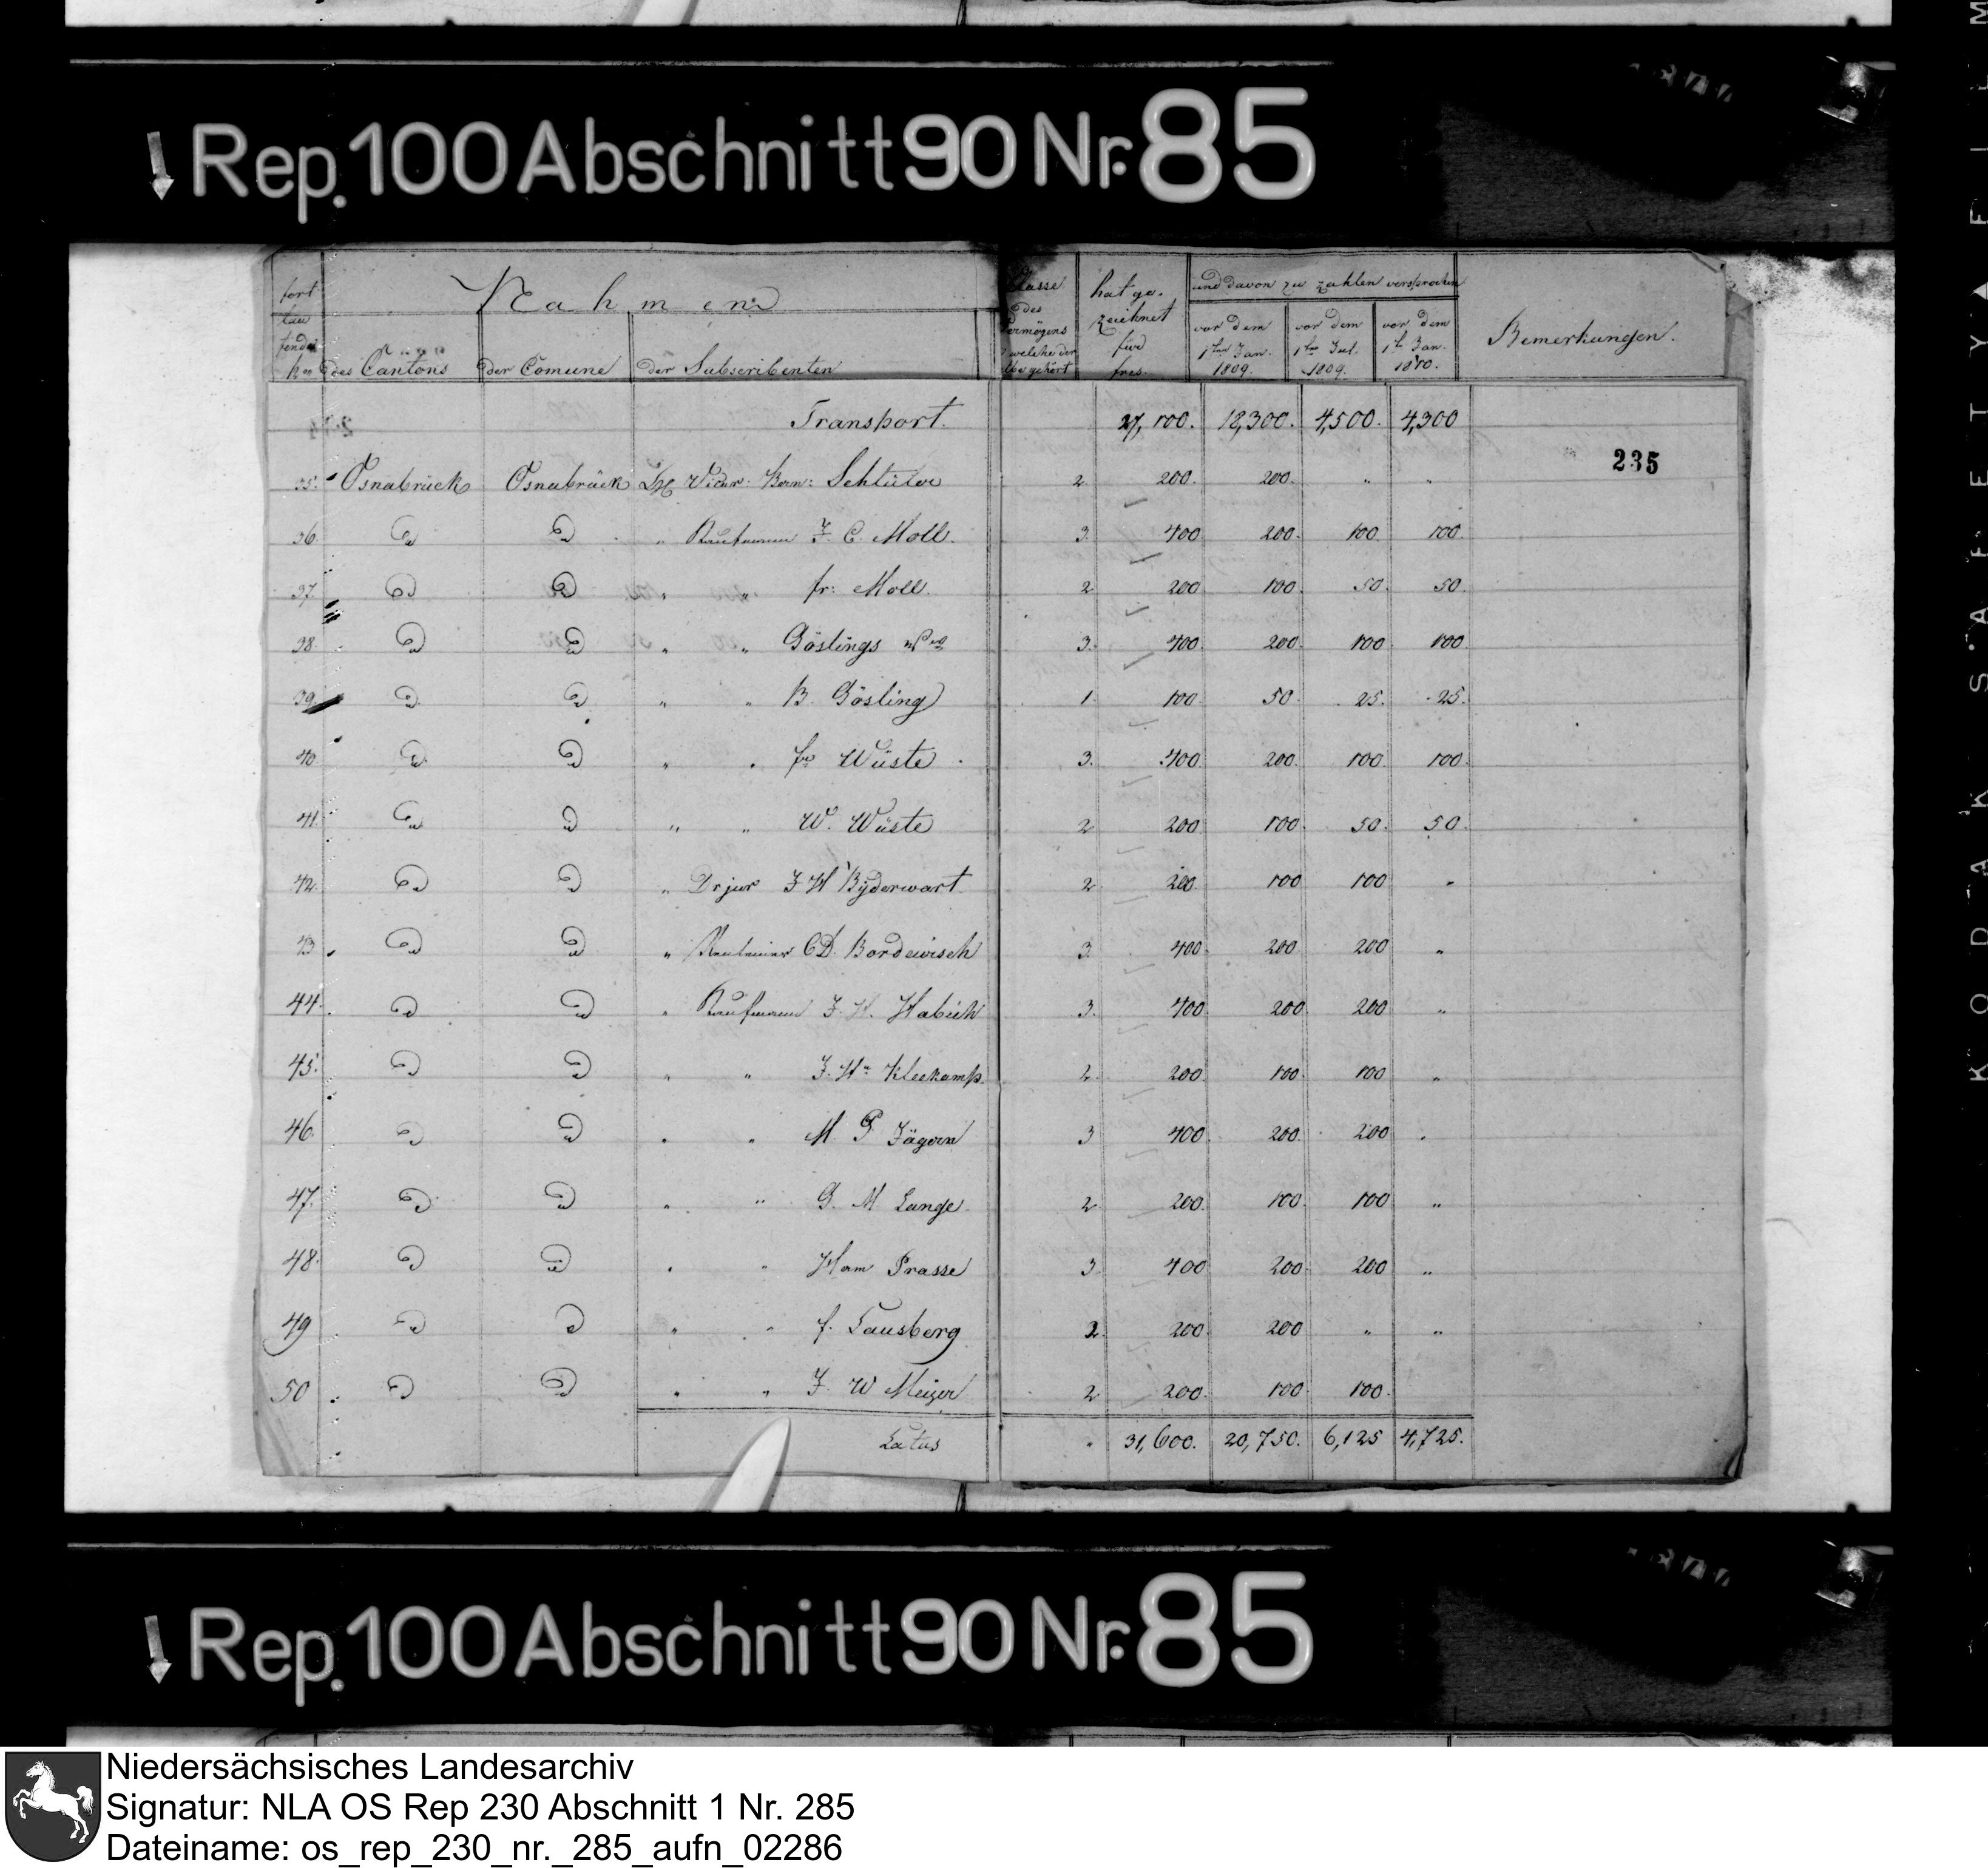 Rep. 100 Abschnitt 90 Nr. 85
fort lau fende No
Nahmen
des Cantons
der Comune
der Subscribenten
Classe des Vermögens welche der
gehört
hat ge. zeichnet für frcs.
und davon zu zahlen versprochen
vor dem 1ten Jan. 1809.
vor dem 1ten Jul. 1809.
vor dem 1t Jan. 1810.
Bemerkungen.
Transport. 27,100. 18,300. 4,500. 4,300
235
35. Osnabrück Osnabrück Hr Vicar. Bern: Schlüter 2 200. 200. " "
36 D D " Kaufmann J. C. Moll. 3. 400 200. 100. 100
37. D D " " fr: Moll. 2 200 100. 50. 50.
38. D D " " Göslings Wwe 3. 400. 200. 100. 100
39. D D " " B. Gösling 1. 100 50. 25. 25.
40 D D " " fr Wüste 3. 400 200. 100. 100.
41. D D " " W. Wüste 2 200 100. 50. 50.
42. D D " Dr jur J H Bÿderwart 2 200 100 100 "
43 D D " Rentenier CD. Bordewisch 3 400. 200 200 "
44. D D " Kaufmann J. H. Habich 3. 400 200 200 "
45. D D " " J. Hn Kleekamp. 2. 200. 100. 100 "
46. D D " " M P Jägern 3 400. 200. 200 "
47. D D " " G. M Lange. 2 200. 100. 100 "
48. D D " " Herm Prasse 3. 400 200. 200 "
49 D D " " f. Tausberg 2. 200. 200 " "
50 D D " " J. W Meizer 2 200. 100 100.
Latus " 31,600. 20,750. 6,125 4,725.
Rep. 100 Abschnitt 90 Nr. 85
KODAK SAFETY FILM
Niedersächsisches Landesarchiv
Signatur: NLA OS Rep 230 Abschnitt 1 Nr. 285
Dateiname: os_rep_230_nr._285_aufn_02286